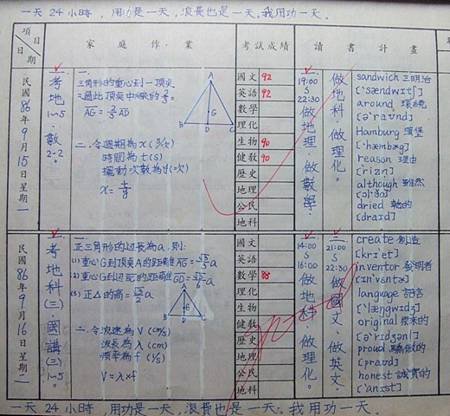 一天 24 小時，用功是一天，浪費也是一天，我用功一天．
項目
日期
家庭作業
考試成績
讀書計畫
民國86年9月15日星期一
考地 1~5、數 2-2
一、
三角形的重心到一頂點
=過此頂點中線的 2/3
AG = 2/3 AD
A
G
B D C
二、令週期為 x (秒/次)
時間為 t (s)
擺動次數為 y (次)
x = t/y
國文 92
英語 92
數學
理化
生物 90
健教 90
歷史
地理
公民
地科
19:00
S
22:30
做地理。做數學。
做地科。做理化。
sandwich 三明治
['sændwɪtʃ]
around 環繞
[ə'raʊnd]
Hamburg 漢堡
['hæmbɝg]
reason 理由
['rizn]
although 雖然
[ɔl'ðo]
dried 乾的
[draɪd]
民國86年9月16日星期二
考地科(三)、國講(三)1~5。
一、
正三角形的边長為 a，則：
(1)重心G到頂点A的距離 AG = √3/3 a
(2)重心G到边BC的距離 GD = √3/6 a
(3)正△的高 = √3/2 a
A
G
B D C
二、令波速為 V (cm/s)
波長為 λ (cm)
頻率為 f (1/s)
V = λ × f
國文
英語
數學 88
理化
生物
健教
歷史
地理
公民
地科
14:00
S
16:00
做地科。做理化。
21:00
S
22:30
做國文。做英文。
create 創造
[krɪ'et]
inventor 發明者
[ɪn'vɛntɚ]
language 語言
['læŋgwɪdʒ]
original 原來的
[ə'rɪdʒənl]
proud 驕傲的
[praʊd]
honest 誠實的
['ɑnɪst]
一天 24 小時，用功是一天，浪費也是一天。我用功一天